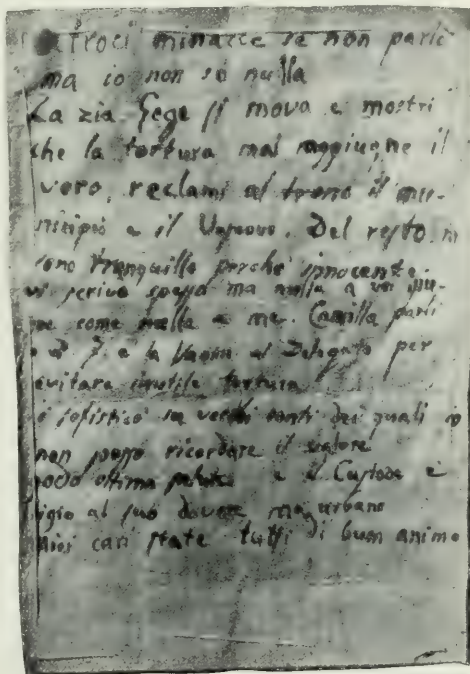 atroci minacce se non parlo
ma io non so nulla
La zia Gege si mova e mostri
che la tortura mal raggiugne il
vero, reclami al trono il mu-
nicipio e il Vescovo. Del resto io
sono tranquillo perchè innocente
scrivo spesso ma nulla a voi giu-
gne come nulla a me. Camilla parli
e la al Delegato per
evitare inutile tortura
si sofisticò su vecchi conti dei quali io
non posso ricordare il valore
godo ottima e il Custode è
ligio al suo dovere ma urbano
miei cari state tutti di buon animo